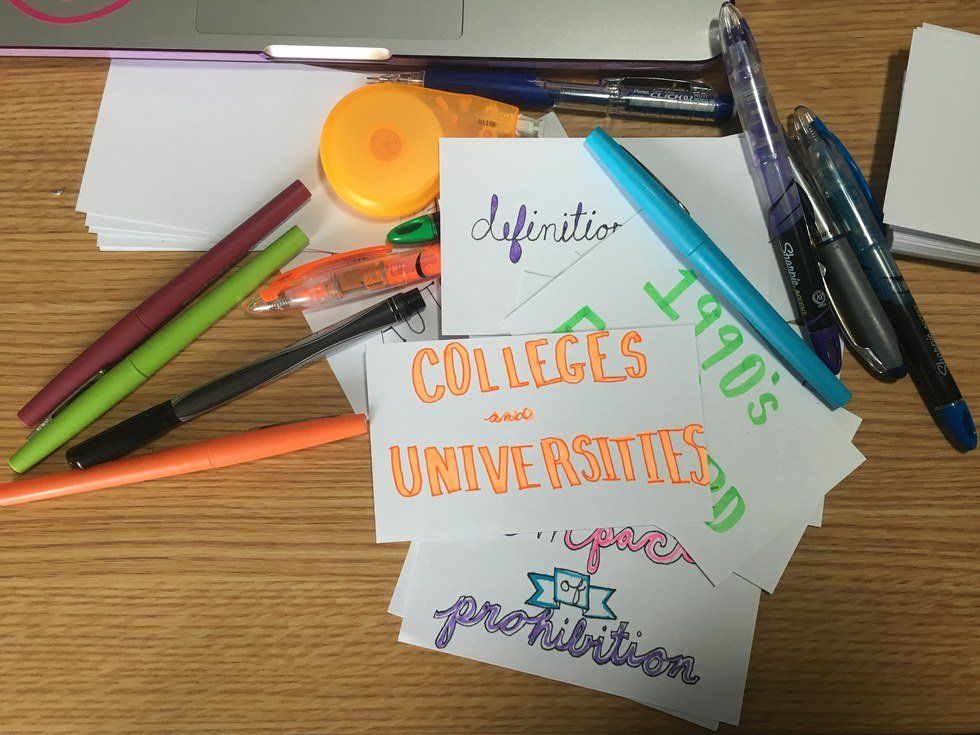 CLICK
Sharpie
Sharpie
definition
1990's
COLLEGES
and
UNIVERSITIES
of
prohibition